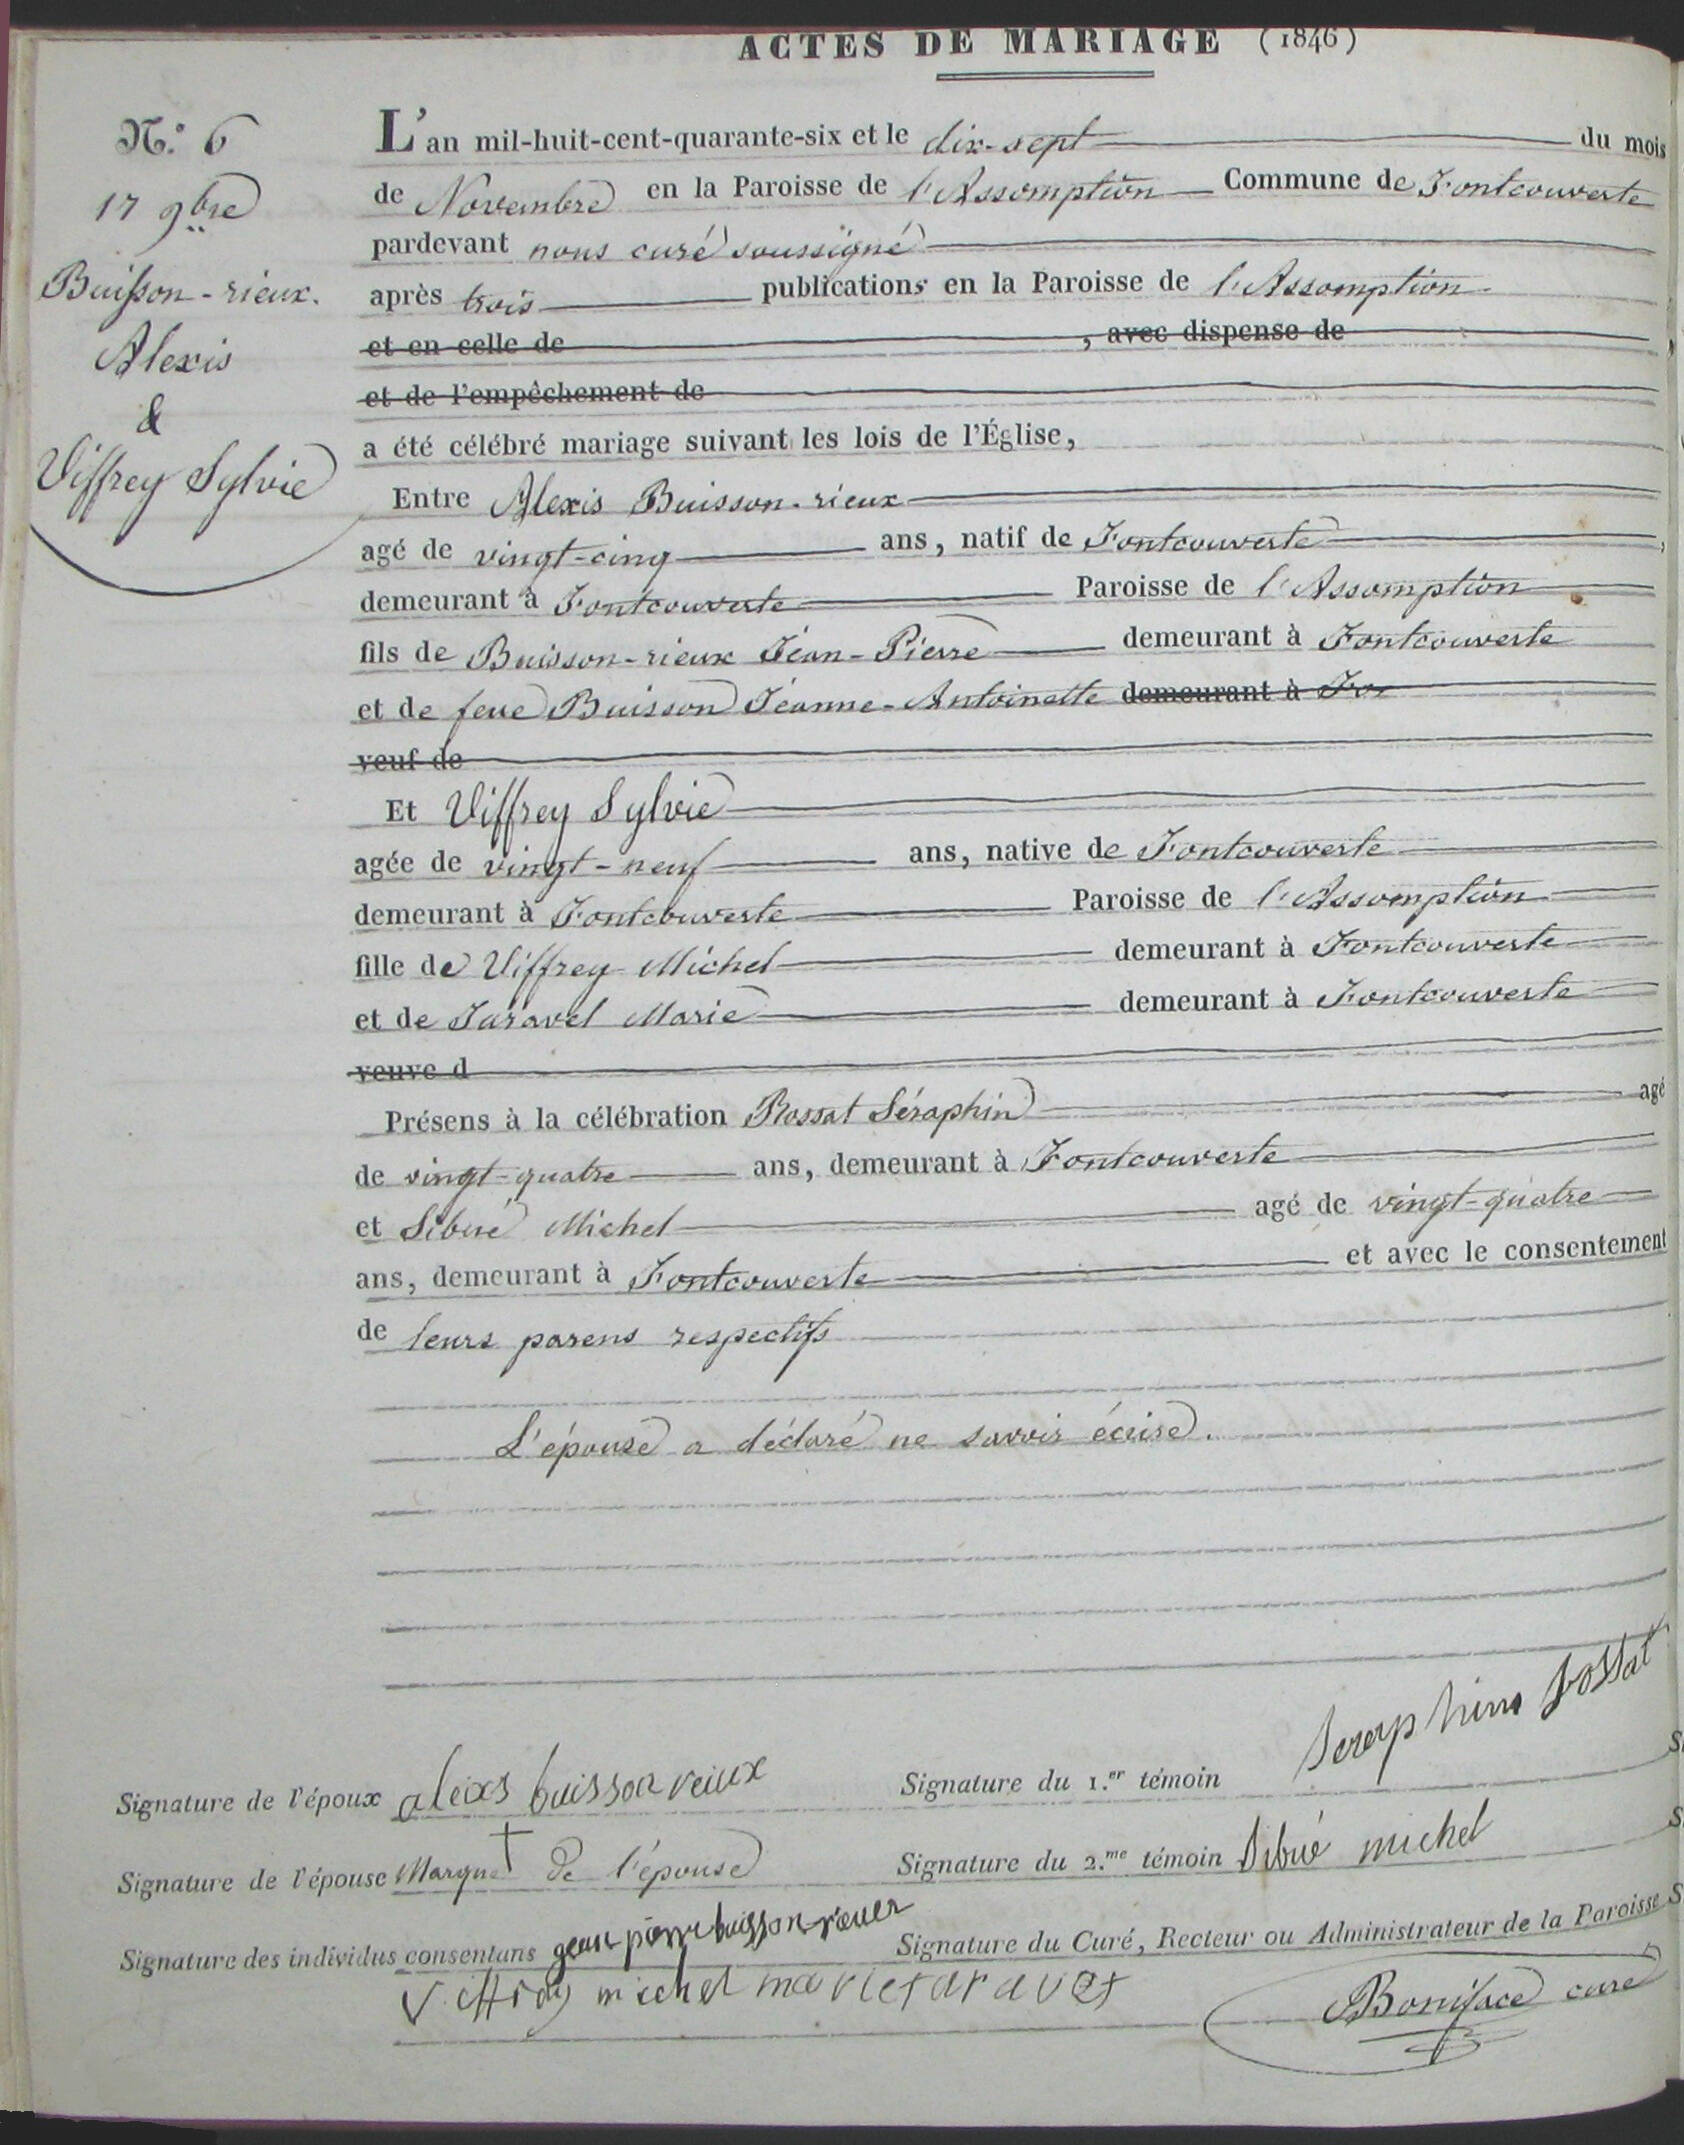 ACTES DE MARIAGE (1846)
N.º 6
17 9bre
Buisson-rieux.
Alexis
&
Viffrey Sylvie
L'an mil-huit-cent-quarante-six et le dix-sept du mois
de Novembre en la Paroisse de l'Assomption Commune de Fontcouverte
pardevant nous curé soussigné
après trois publications en la Paroisse de l'Assomption
et en celle de , avec dispense de
et de l'empêchement de
a été célébré mariage suivant les lois de l'Église,
Entre Alexis Buisson-rieux
agé de vingt-cinq ans, natif de Fontcouverte,
demeurant à Fontcouverte Paroisse de l'Assomption
fils de Buisson-rieux Jéan-Pierre demeurant à Fontcouverte
et de feue Buisson Jéanne-Antoinette demeurant à Fo
veuf de
Et Viffrey Sylvie
agée de vingt-neuf ans, native de Fontcouverte
demeurant à Fontcouverte Paroisse de l'Assomption
fille de Viffrey Michel demeurant à Fontcouverte
et de Taravel Marie demeurant à Fontcouverte
veuve d
Présens à la célébration Rossat Séraphin agé
de vingt-quatre ans, demeurant à Fontcouverte
et Sibué Michel agé de vingt-quatre
ans, demeurant à Fontcouverte et avec le consentement
de leurs parens respectifs
L'épouse a déclaré ne savoir écrire.
Signature de l'époux alexis buisson rieux Signature du 1.er témoin Seraphin rossat
Signature de l'épouse Marque † de l'épouse Signature du 2.me témoin Sibué michel
Signature des individus consentans jean pierre buisson rieux Signature du Curé, Recteur ou Administrateur de la Paroisse
Viffrey michel marie taravel Boniface curé